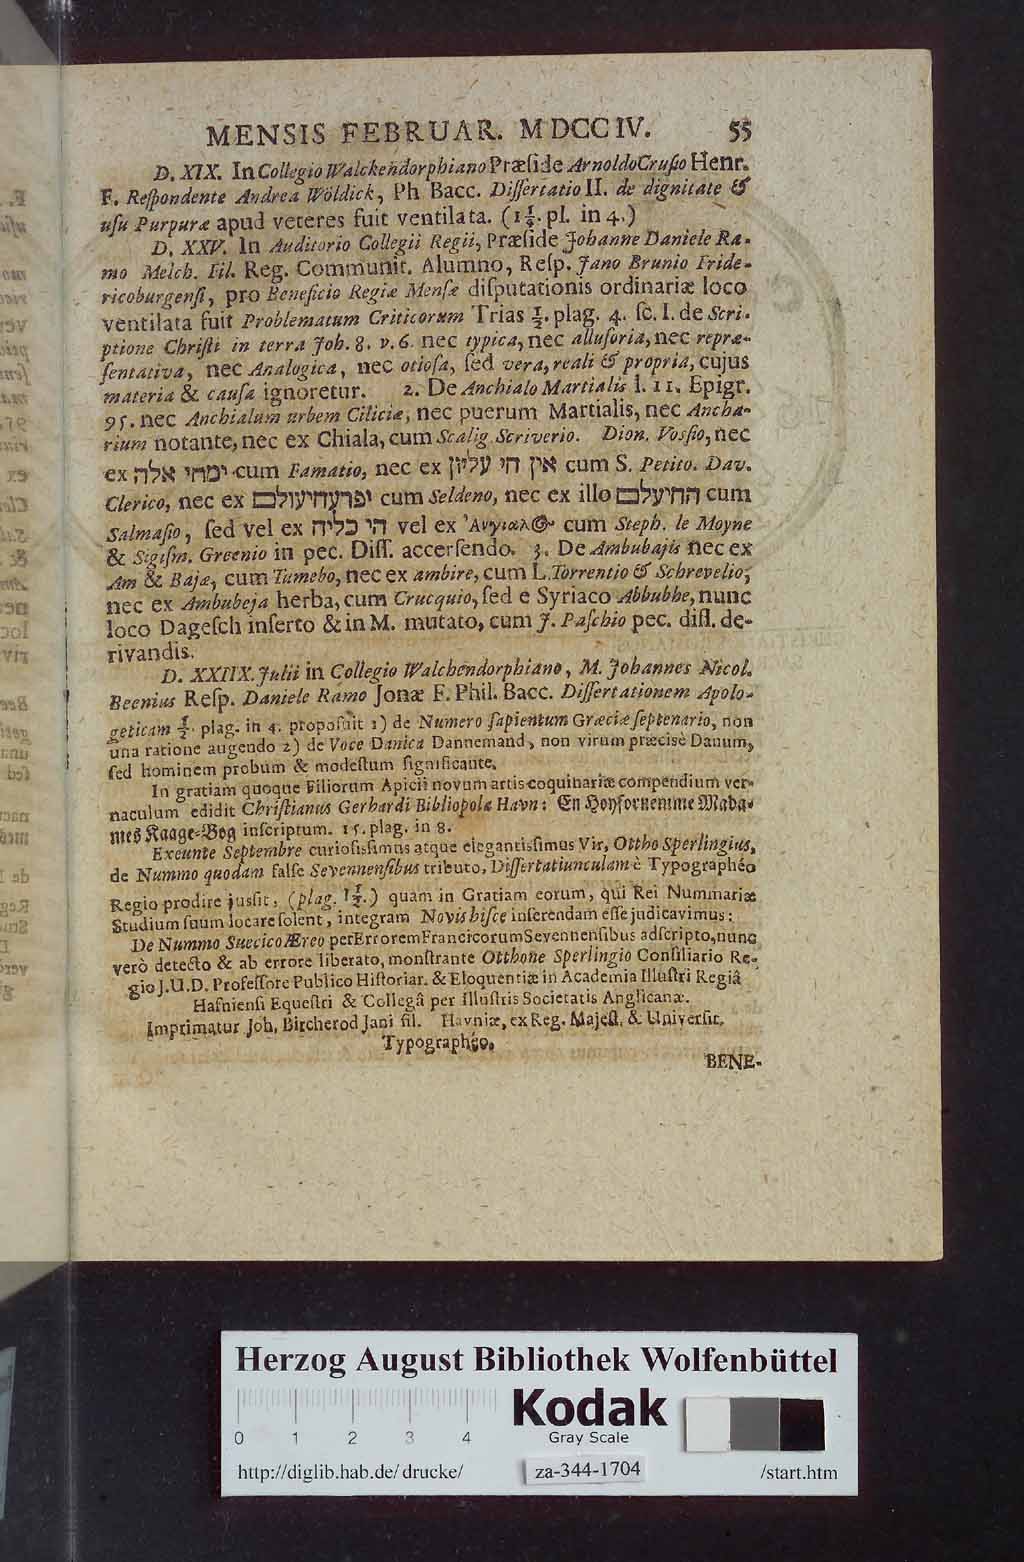 MENSIS FEBRUAR. MDCCIV. 55
D. XIX. In Collegio Walckendorphiano Præſide Arnoldo Cruſio Henr.
F. Reſpondente Andrea Wöldick, Ph. Bacc. Diſſertatio II. de dignitate &
uſu Purpuræ apud veteres fuit ventilata. (1 1/4. pl. in 4.)
D. XXV. In Auditorio Collegii Regii, Præſide Johanne Daniele Ra-
mo Melch. Fil. Reg. Communit. Alumno, Reſp. Jano Brunio Fride-
ricoburgenſi, pro Beneficio Regiæ Menſæ diſputationis ordinariæ loco
ventilata fuit Problematum Criticorum Trias 1/2. plag. 4. ſc. I. de Scri-
ptione Chriſti in terra Joh. 8. v. 6. nec typica, nec alluſoria, nec repræ-
ſentativa, nec Analogica, nec otioſa, ſed vera, reali & propria, cujus
materia & cauſa ignoretur. 2. De Anchialo Martialis l. 11. Epigr.
95. nec Anchialum urbem Ciliciæ, nec puerum Martialis, nec Ancha-
rium notante, nec ex Chiala, cum Scalig. Scriverio. Dion. Voſſio, nec
ex ימחי אלה cum Famatio, nec ex אין חי עליון cum S. Petito. Dav.
Clerico, nec ex יפרעחיעולם cum Seldeno, nec ex illo החיעלם cum
Salmaſio, ſed vel ex חי כליה vel ex cum Steph. le Moyne
& Sigiſm. Greenio in pec. Diſſ. accerſendo. 3. De Ambubajis nec ex
Am & Bajæ, cum Turnebo, nec ex ambire, cum L. Torrentio & Schrevelio,
nec ex Ambubeja herba, cum Crucquio, ſed e Syriaco Abbubbe, nunc
loco Dageſch inſerto & in M. mutato, cum J. Paſchio pec. diſſ. de-
rivandis.
D. XXIIX. Julii in Collegio Walchendorphiano, M. Johannes Nicol.
Beenius Reſp. Daniele Ramo Jonæ F. Phil. Bacc. Diſſertationem Apolo-
geticam 1/2. plag. in 4. propoſuit 1) de Numero ſapientum Græciæ ſeptenario, non
una ratione augendo 2) de Voce Danica Dannemand, non virum præcisè Danum,
ſed hominem probum & modeſtum ſignificante.
In gratiam quoque Filiorum Apicii novum artis coquinariæ compendium ver-
naculum edidit Chriſtianus Gerhardi Bibliopola Havn: En Høyfornemme Mada-
mes Kaage-Bog inſcriptum. 15. plag. in 8.
Exeunte Septembre curioſiſſimus atque elegantiſſimus Vir, Ottho Sperlingius,
de Nummo quodam falſe Sevennenſibus tributo, Diſſertatiunculam è Typographéo
Regio prodire juſſit, (plag. 1 1/2.) quam in Gratiam eorum, qui Rei Nummariæ
Studium ſuum locare ſolent, integram Novis hiſce inſerendam eſſe judicavimus:
De Nummo Suecico Æreo per Errorem Francicorum Sevennenſibus adſcripto, nunc
verò detecto & ab errore liberato, monſtrante Otthone Sperlingio Conſiliario Re-
gio J.U.D. Profeſſore Publico Hiſtoriar. & Eloquentiæ in Academia Illuſtri Regiâ
Hafnienſi Equeſtri & Collegâ per Illuſtris Societatis Anglicanæ.
Imprimatur Joh. Bircherod Jani fil. Havniæ, ex Reg. Majeſt. & Univerſit.
Typographéo.
BENE-
Herzog August Bibliothek Wolfenbüttel
0 1 2 3 4
Kodak
Gray Scale
http://diglib.hab.de/drucke/ za-344-1704 /start.htm